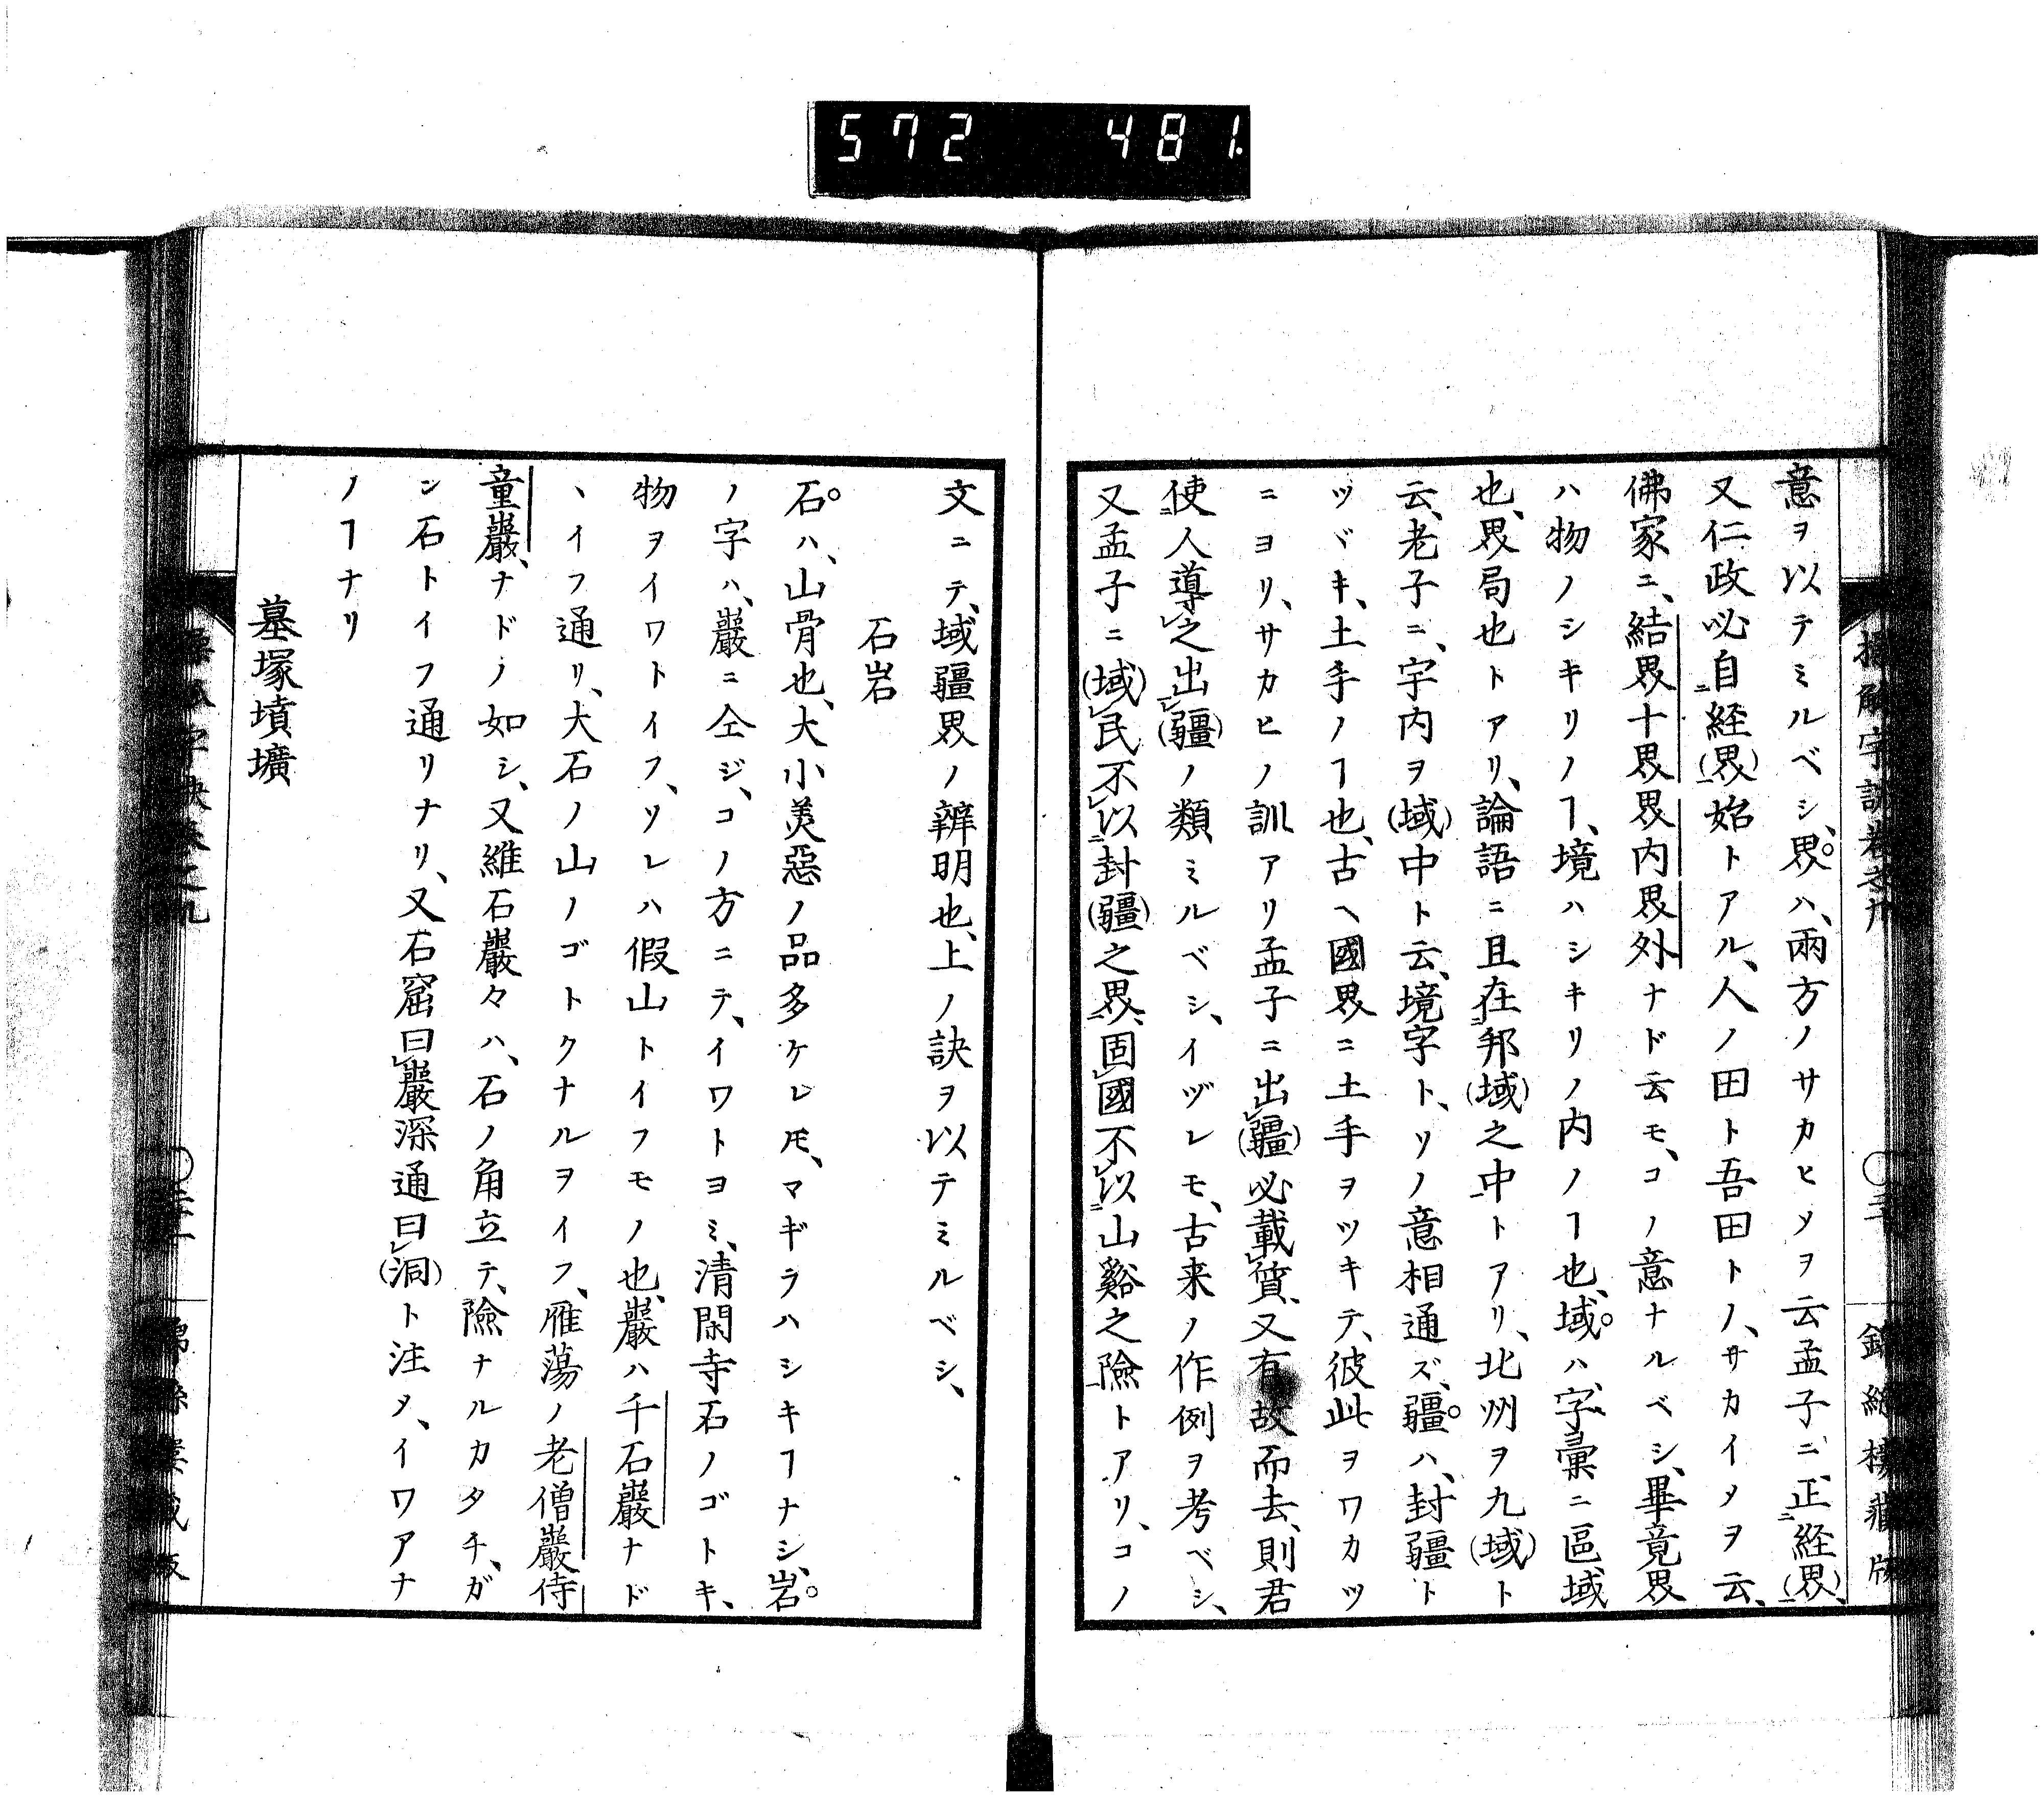 572 481
意ヲ以テミルベシ、界ハ、兩方ノサカヒメヲ云孟子ニ、正経(界)、
又仁政必自経(界)始トアル、人ノ田ト吾田トノ、サカイメヲ云、
佛家ニ、結界十界界内界外ナド云モ、コノ意ナルベシ、畢竟界
ハ物ノシキリノヿ、境ハシキリノ内ノヿ也、域ハ、字彙ニ區域
也、界局也トアリ、論語ニ且在邦(域)之中トアリ、北州ヲ九(域)ト
云、老子ニ、宇内ヲ(域)中ト云、境字ト、ソノ意相通ズ、疆ハ、封疆ト
ツヾキ、土手ノヿ也、古ヘ國界ニ土手ヲツキテ、彼此ヲワカツ
ニヨリ、サカヒノ訓アリ孟子ニ出(疆)必載質、又有故而去、則君
使人導之出(疆)ノ類ミルベシ、イヅレモ、古来ノ作例ヲ考ベシ、
又孟子ニ(域)民不以封(疆)之界、固國不以山谿之險トアリ、コノ
文ニテ、域疆界ノ辨明也、上ノ訣ヲ以テミルベシ、
石岩
石ハ、山骨也、大小美惡ノ品多ケレ𪜈、マギラハシキヿナシ、岩
ノ字ハ、巖ニ仝ジ、コノ方ニテ、イワトヨミ、清閑寺石ノゴトキ、
物ヲイワトイフ、ソレハ假山トイフモノ也、巖ハ千石巖ナド
ヽイフ通リ、大石ノ山ノゴトクナルヲイフ、雁蕩ノ老僧巖侍
童巖、ナドノ如シ、又維石巖々ハ、石ノ角立テ、險ナルカタチ、ガ
ン石トイフ通リナリ、又石窟曰巖深通曰(洞)ト注メ、イワアナ
ノヿナリ
墓塚墳壙